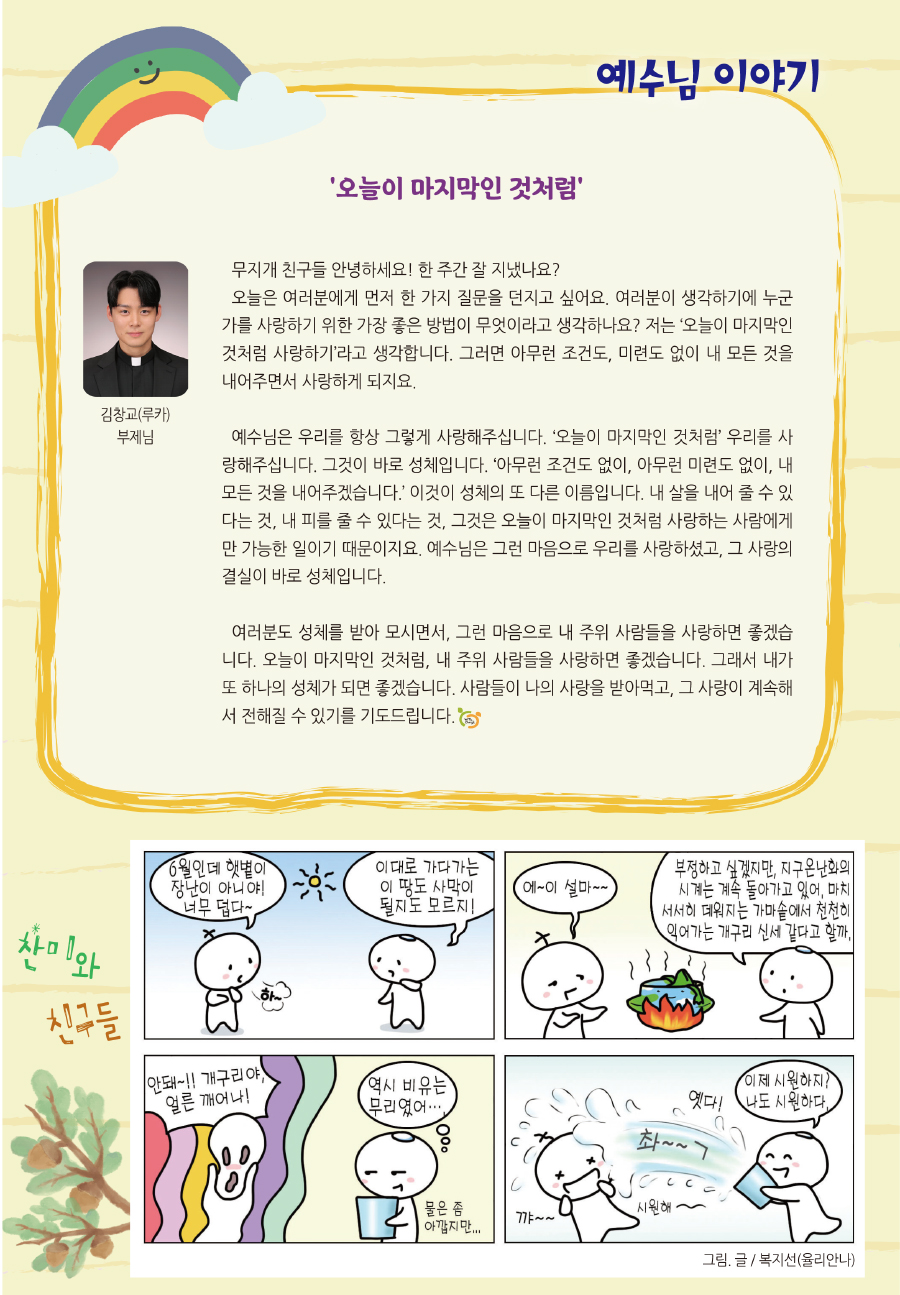 예수님 이야기
'오늘이 마지막인 것처럼'
무지개 친구들 안녕하세요! 한 주간 잘 지냈나요?
오늘은 여러분에게 먼저 한 가지 질문을 던지고 싶어요. 여러분이 생각하기에 누군
가를 사랑하기 위한 가장 좋은 방법이 무엇이라고 생각하나요? 저는 ‘오늘이 마지막인
것처럼 사랑하기’라고 생각합니다. 그러면 아무런 조건도, 미련도 없이 내 모든 것을
내어주면서 사랑하게 되지요.
김창교(루카)
부제님
예수님은 우리를 항상 그렇게 사랑해주십니다. ‘오늘이 마지막인 것처럼’ 우리를 사
랑해주십니다. 그것이 바로 성체입니다. ‘아무런 조건도 없이, 아무런 미련도 없이, 내
모든 것을 내어주겠습니다.’ 이것이 성체의 또 다른 이름입니다. 내 살을 내어 줄 수 있
다는 것, 내 피를 줄 수 있다는 것, 그것은 오늘이 마지막인 것처럼 사랑하는 사람에게
만 가능한 일이기 때문이지요. 예수님은 그런 마음으로 우리를 사랑하셨고, 그 사랑의
결실이 바로 성체입니다.
여러분도 성체를 받아 모시면서, 그런 마음으로 내 주위 사람들을 사랑하면 좋겠습
니다. 오늘이 마지막인 것처럼, 내 주위 사람들을 사랑하면 좋겠습니다. 그래서 내가
또 하나의 성체가 되면 좋겠습니다. 사람들이 나의 사랑을 받아먹고, 그 사랑이 계속해
서 전해질 수 있기를 기도드립니다.
찬미와
친구들
6월인데 햇볕이
장난이 아니야!
너무 덥다~
하~
이대로 가다가는
이 땅도 사막이
될지도 모르지!
에~이 설마~~
부정하고 싶겠지만, 지구온난화의
시계는 계속 돌아가고 있어, 마치
서서히 데워지는 가마솥에서 천천히
익어가는 개구리 신세 같다고 할까.
안돼~!! 개구리야,
얼른 깨어나!
역시 비유는
무리였어…
물은 좀
아깝지만...
옛다!
촤~~ㄱ
이제 시원하지?
나도 시원하다.
꺄~~
시원해~
그림. 글 / 복지선(율리안나)